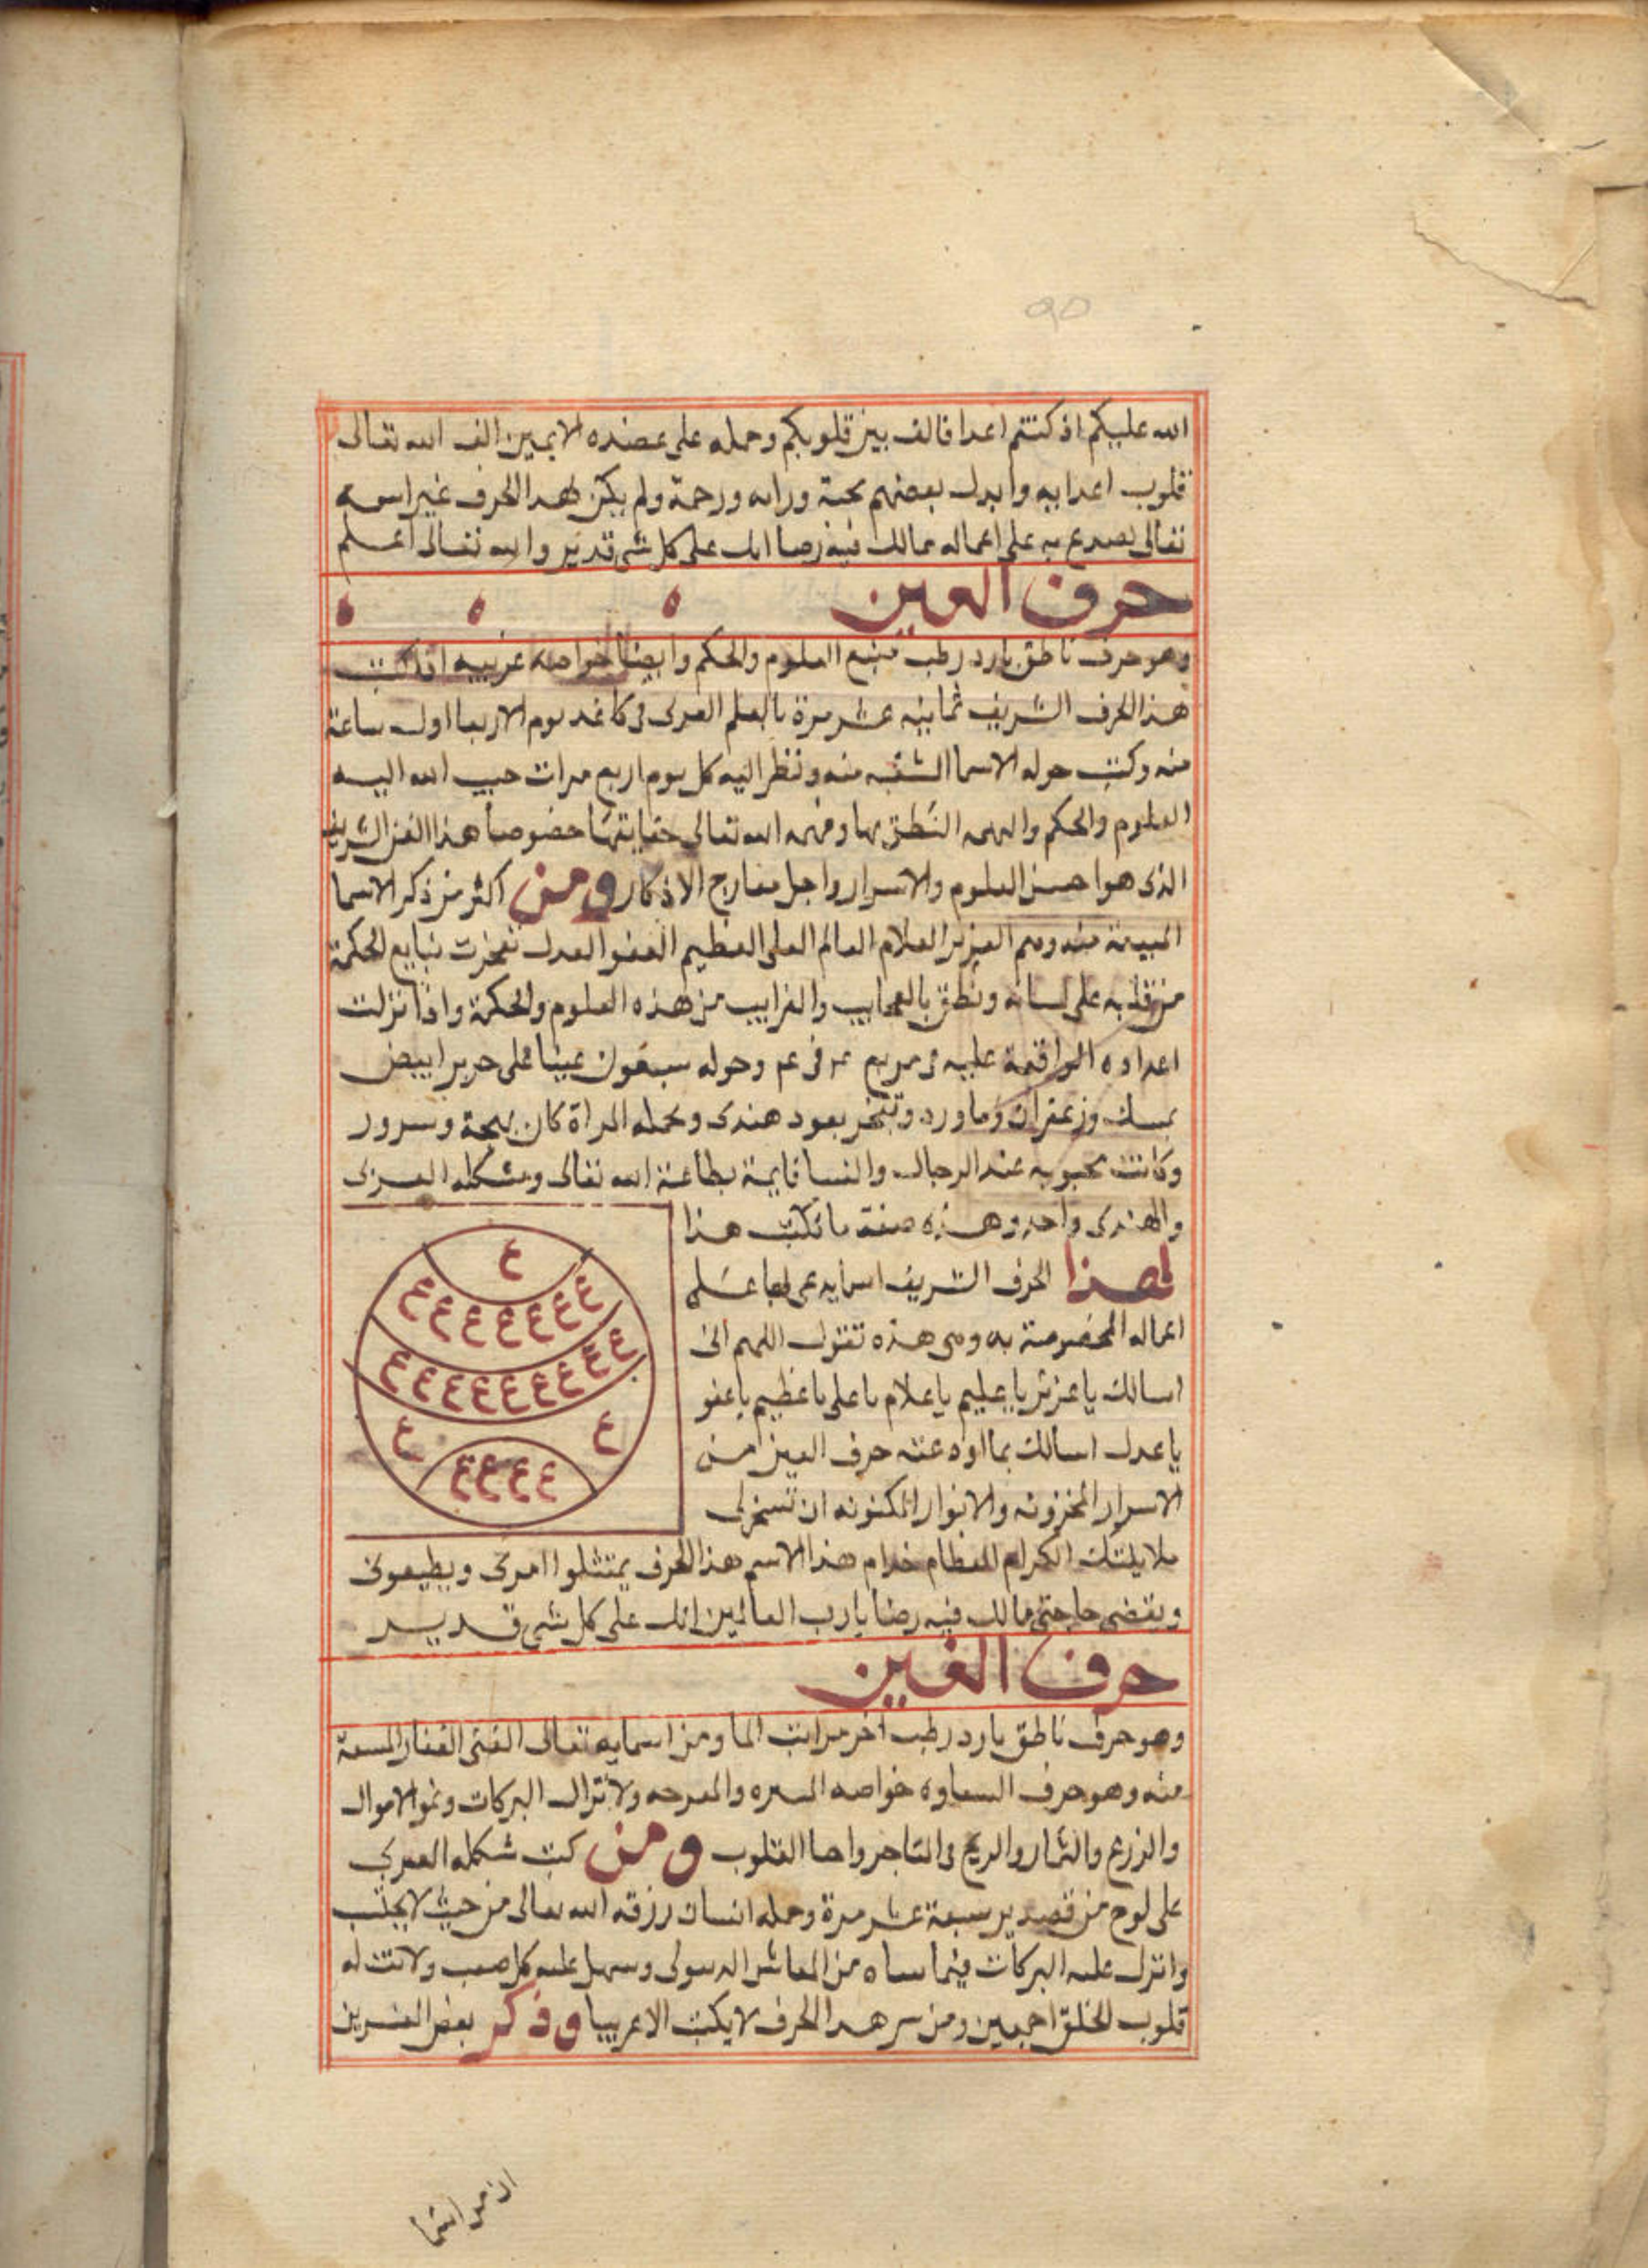 الله عليكم اذ كنتم اعدا فالف بين قلوبكم وحمله على عضده الايمن الف الله تعالى
قلوب اعدايه وابدل بعضهم محبة ورافه ورحمة ولم يكن لهدا الحرف غير اسمه
تعالى على اعماله مما لك فيه رضا انك على كل شى قدير والله تعالى اعلم
حرف العين ه ه ه
وهو حرف ناطق بارد رطب منبع العلوم والحكم وايضا خواصه غريبه اذا كتب
هذا الحرف الشريف ثمانيه عشر مرة بالقلم فى كاغد يوم الاربعا اول ساعة
منه وكتب حوله الاسما منه ونظر اليه كل يوم اربع مرات حبب الله اليه
العلوم والحكم والهمه النطق بها وفهمه الله تعالى حقايقها خصوصا هذا الفن الشريف
الذى هو احسن العلوم والاسرار واجل معارج الاذكار ومن اكثر من ذكر الاسما
منه وهم العزيز العلام العالم العلى العظيم العفو العدل تفجرت ينابيع الحكمة
من قلبه على لسانه ونطق بالعجايب والغرايب من هذه العلوم والحكمة واذا نزلت
اعداده الواقعة عليه فى مربع فى وحوله سبعون عينا على حرير ابيض
بمسك وزعفران وماورد وتبخر بعود هندى وتحمله المراة كان بهجة وسرور
وكانت محبوبه عند الرجال والنسا قايمة بطاعة الله تعالى وشكله العربى
والهندى واحد وهذه صفة ما تكتب هذا
لهذا الحرف الشريف على
اعماله المخصوصة به وهى هذه تقول اللهم انى
اسالك ياعزيز ياعليم ياعلام ياعلى ياعظيم ياعفو
ياعدل اسالك بما حرف العين من
الاسرار المخزونه والانوار المكنونه ان تسخر لى
ع
ع ع ع ع ع ع ع
ع ع ع ع ع ع ع ع ع
ع ع
ع ع ع ع
ملايكتك الكرام العظام خدام هذا الاسم هذا الحرف يمتثلوا امرى ويطيعونى
ويقضى حاجتى مما لك فيه رضا يارب العالمين انك على كل شى قدير
حرف الغين
وهو حرف ناطق بارد رطب اخر مراتب الما ومن اسمايه تعالى الغنى الغفار
منه وهو حرف خواصه ولانزال البركات ونمو الاموال
والزرع والثمار والربح فى المتاجر القلوب ومن كتب شكله العربى
على لوح من قصدير سبعة عشر مرة وحمله انسان رزقه الله تعالى من حيث لا يحتسب
وانزل عليه البركات فيما من المعاش وسهل عليه كل صعب ولانت له
قلوب الخلق اجمعين ومن سر هدا الحرف لا يكتب الا عربيا وذكر بعض